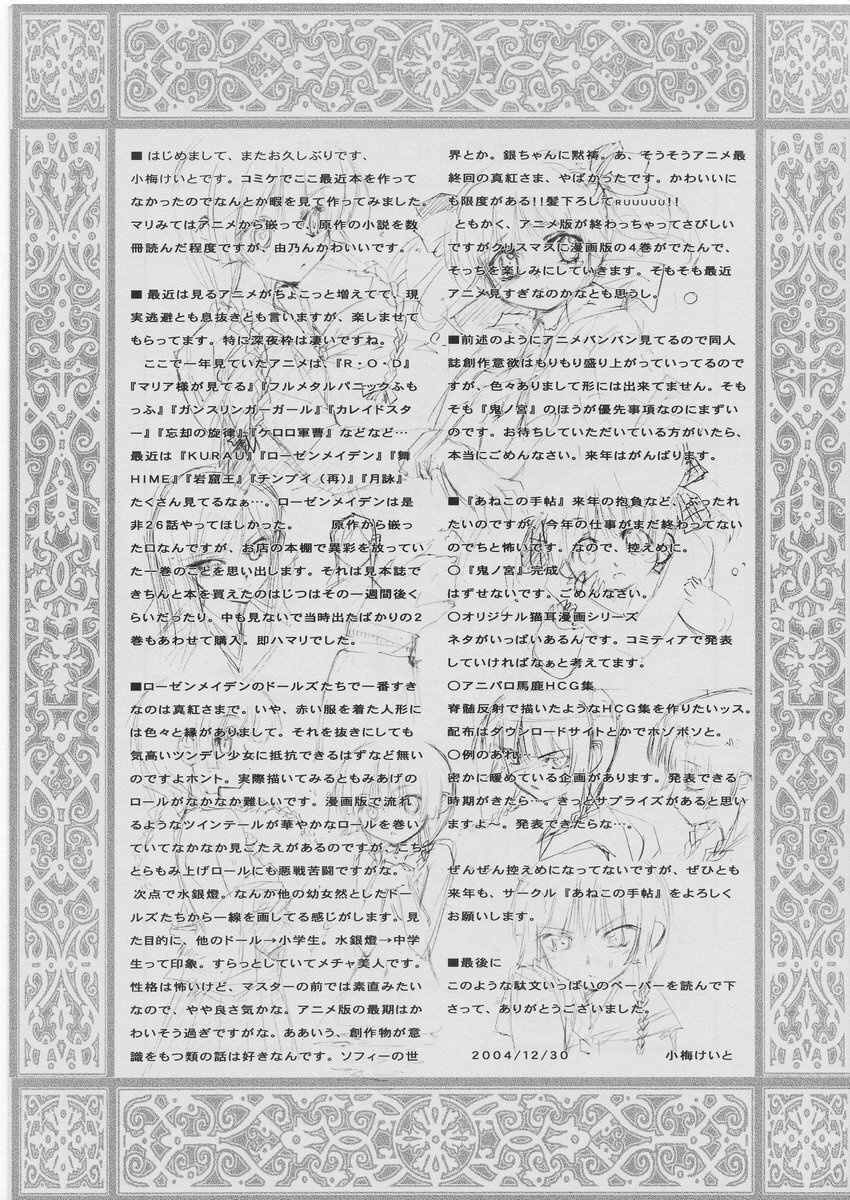 ■ はじめまして、またお久しぶりです、
小梅けいとです。コミケでここ最近本を作って
なかったのでなんとか暇を見て作ってみました。
マリみてはアニメから嵌って、原作の小説を数
冊読んだ程度ですが、由乃んかわいいです。
■ 最近は見るアニメがちょこっと増えてて、現
実逃避とも息抜きとも言いますが、楽しませて
もらってます。特に深夜枠は凄いですね。
ここで一年見ていたアニメは、『R・O・D』
『マリア様が見てる』『フルメタルパニックふも
っふ』『ガンスリンガーガール』『カレイドスタ
ー』『忘却の旋律』『ケロロ軍曹』などなど…
最近は『KURAU』『ローゼンメイデン』『舞
HIME』『岩窟王』『チンプイ(再)』『月詠』
たくさん見てるなぁ…。ローゼンメイデンは是
非26話やってほしかった。 原作から嵌っ
た口なんですが、お店の本棚で異彩を放ってい
た一巻のことを思い出します。それは見本誌で
きちんと本を買えたのはじつはその一週間後く
らいだったり。中も見ないで当時出たばかりの2
巻もあわせて購入。即ハマりでした。
■ローゼンメイデンのドールズたちで一番すき
なのは真紅さまで。いや、赤い服を着た人形に
は色々と縁がありまして。それを抜きにしても
気高いツンデレ少女に抵抗できるはずなど無い
のですよホント。実際描いてみるともみあげの
ロールがなかなか難しいです。漫画版で流れ
るようなツインテールが華やかなロールを巻い
ていてなかなか見ごたえがあるのですが、こち
とらもみ上げロールにも悪戦苦闘ですがな。
次点で水銀燈。なんか他の幼女然としたドー
ルズたちから一線を画してる感じがします。見
た目的に、他のドール→小学生。水銀燈→中学
生って印象。すらっとしていてメチャ美人です。
性格は怖いけど、マスターの前では素直みたい
なので、やや良さ気かな。アニメ版の最期はか
わいそう過ぎですがな。ああいう、創作物が意
識をもつ類の話は好きなんです。ソフィーの世
界とか。銀ちゃんに黙祷。あ、そうそうアニメ最
終回の真紅さま、やばかったです。かわいいに
も限度がある!!髪下ろしてRUUUUU!!
ともかく、アニメ版が終わっちゃってさびしい
ですがクリスマスに漫画版の4巻がでたんで、
そっちを楽しみにしていきます。そもそも最近
アニメ見すぎなのかなとも思うし。
■前述のようにアニメバンバン見てるので同人
誌創作意欲はもりもり盛り上がっていってるので
すが、色々ありまして形には出来てません。そも
そも『鬼ノ宮』のほうが優先事項なのにまずい
のです。お待ちしていただいている方がいたら、
本当にごめんなさい。来年はがんばります。
■『あねこの手帖』来年の抱負など、ぶったれ
たいのですが、今年の仕事がまだ終わってない
のでちと怖いです。なので、控えめに。
○『鬼ノ宮』完成
はずせないです。ごめんなさい。
○オリジナル猫耳漫画シリーズ
ネタがいっぱいあるんです。コミティアで発表
していければなぁと考えてます。
○アニパロ馬鹿HCG集
脊髄反射で描いたようなHCG集を作りたいッス。
配布はダウンロードサイトとかでホソボソと。
○例のあれ……
密かに暖めている企画があります。発表できる
時期がきたら…。きっとサプライズがあると思い
ますよ～。発表できたらな…。
ぜんぜん控えめになってないですが、ぜひとも
来年も、サークル『あねこの手帖』をよろしく
お願いします。
■最後に
このような駄文いっぱいのペーパーを読んで下
さって、ありがとうございました。
2004/12/30 小梅けいと